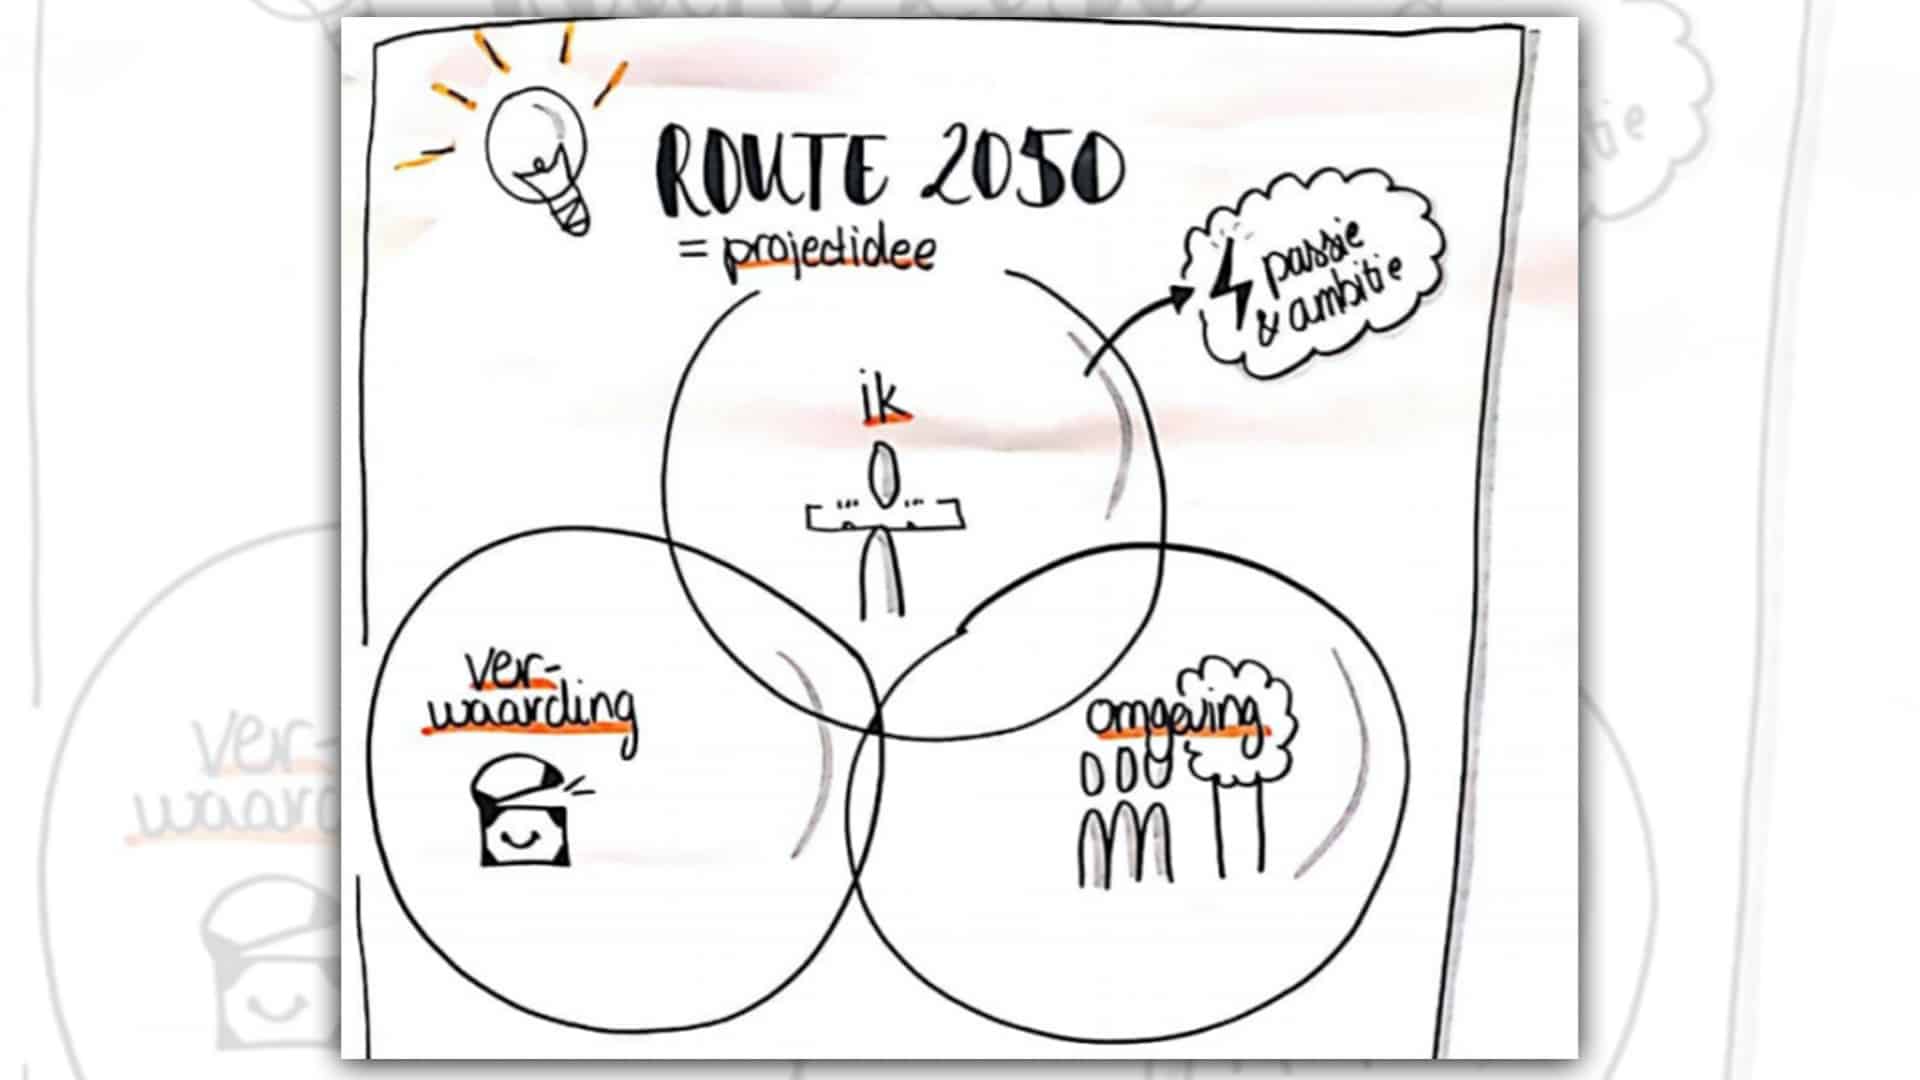 ROUTE 2050
= projectidee
passie
& ambitie
ik
ver-
waarding
omgeving